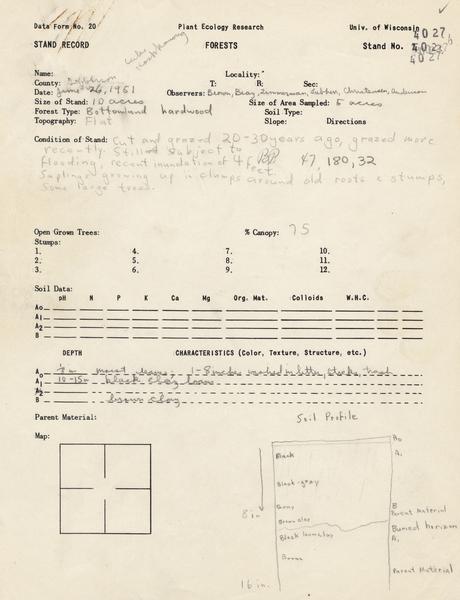 Data Form No. 20 Plant Ecology Research Univ. of Wisconsin
4027
STAND RECORD FORESTS Stand No.
Name: Locality:
County: T: R: Sec:
Date: June 26, 1961 Observers: Brown, Beay, Zimmerman,
Size of Stand: 10 acres Size of Area Sampled: 5 acres
Forest Type: Bottomland hardwood Soil Type:
Topography: Flat Slope: Directions
Condition of Stand: Cut and grazed 20-30 years ago, grazed more
recently. Still subject to
flooding, recent inundation of 4 feet 47, 180, 32
Saplings growing up in clumps around old roots & stumps,
Some large trees.
Open Grown Trees: % Canopy: 75
Stumps:
1. 4. 7. 10.
2. 5. 8. 11.
3. 6. 9. 12.
Soil Data:
pH N P K Ca Mg Org. Mat. Colloids W.H.C.
Ao
A1
A2
B
DEPTH CHARACTERISTICS (Color, Texture, Structure, etc.)
Ao
A1 10-15in black clay loam
A2
B brown clay
Parent Material: Soil Profile
Map:
Ao
Black A1
Black-gray
8 in
Gray B
Brown clay Parent Material
Buried horizon
Black loam, clay A1
Brown
Parent Material
16 in.